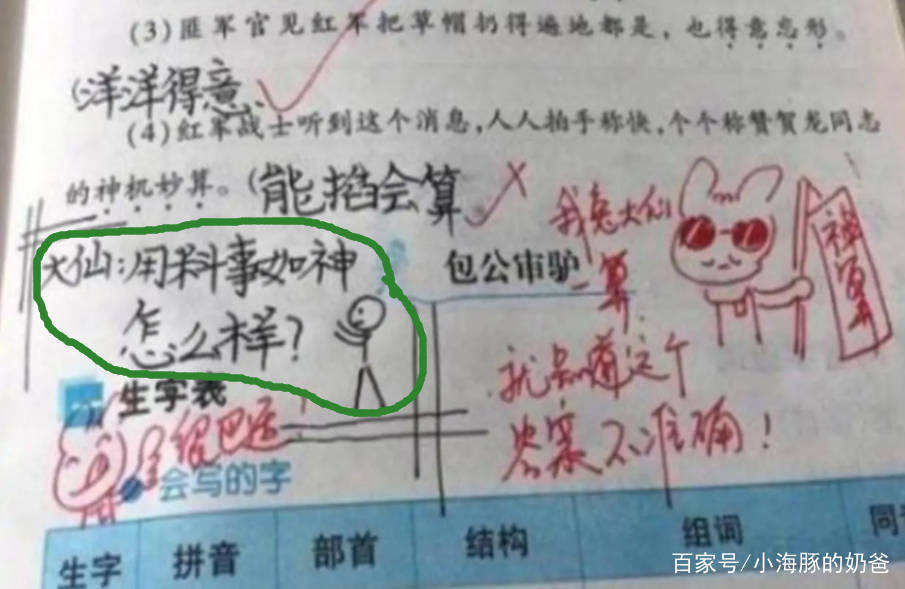 (3)匪军官见红军把草帽扔得遍地都是，也得意忘形。
(洋洋得意)
(4)红军战士听到这个消息,人人拍手称快,个个称赞贺龙同志
的神机妙算。(能掐会算
我兔大仙
一算
就知道这个
答案不准确!
神算
大仙:用料事如神
怎么样?
包公审驴
生字表
很巴适!
会写的字
生字
拼音
部首
结构
组词
同
百家号/小海豚的奶爸